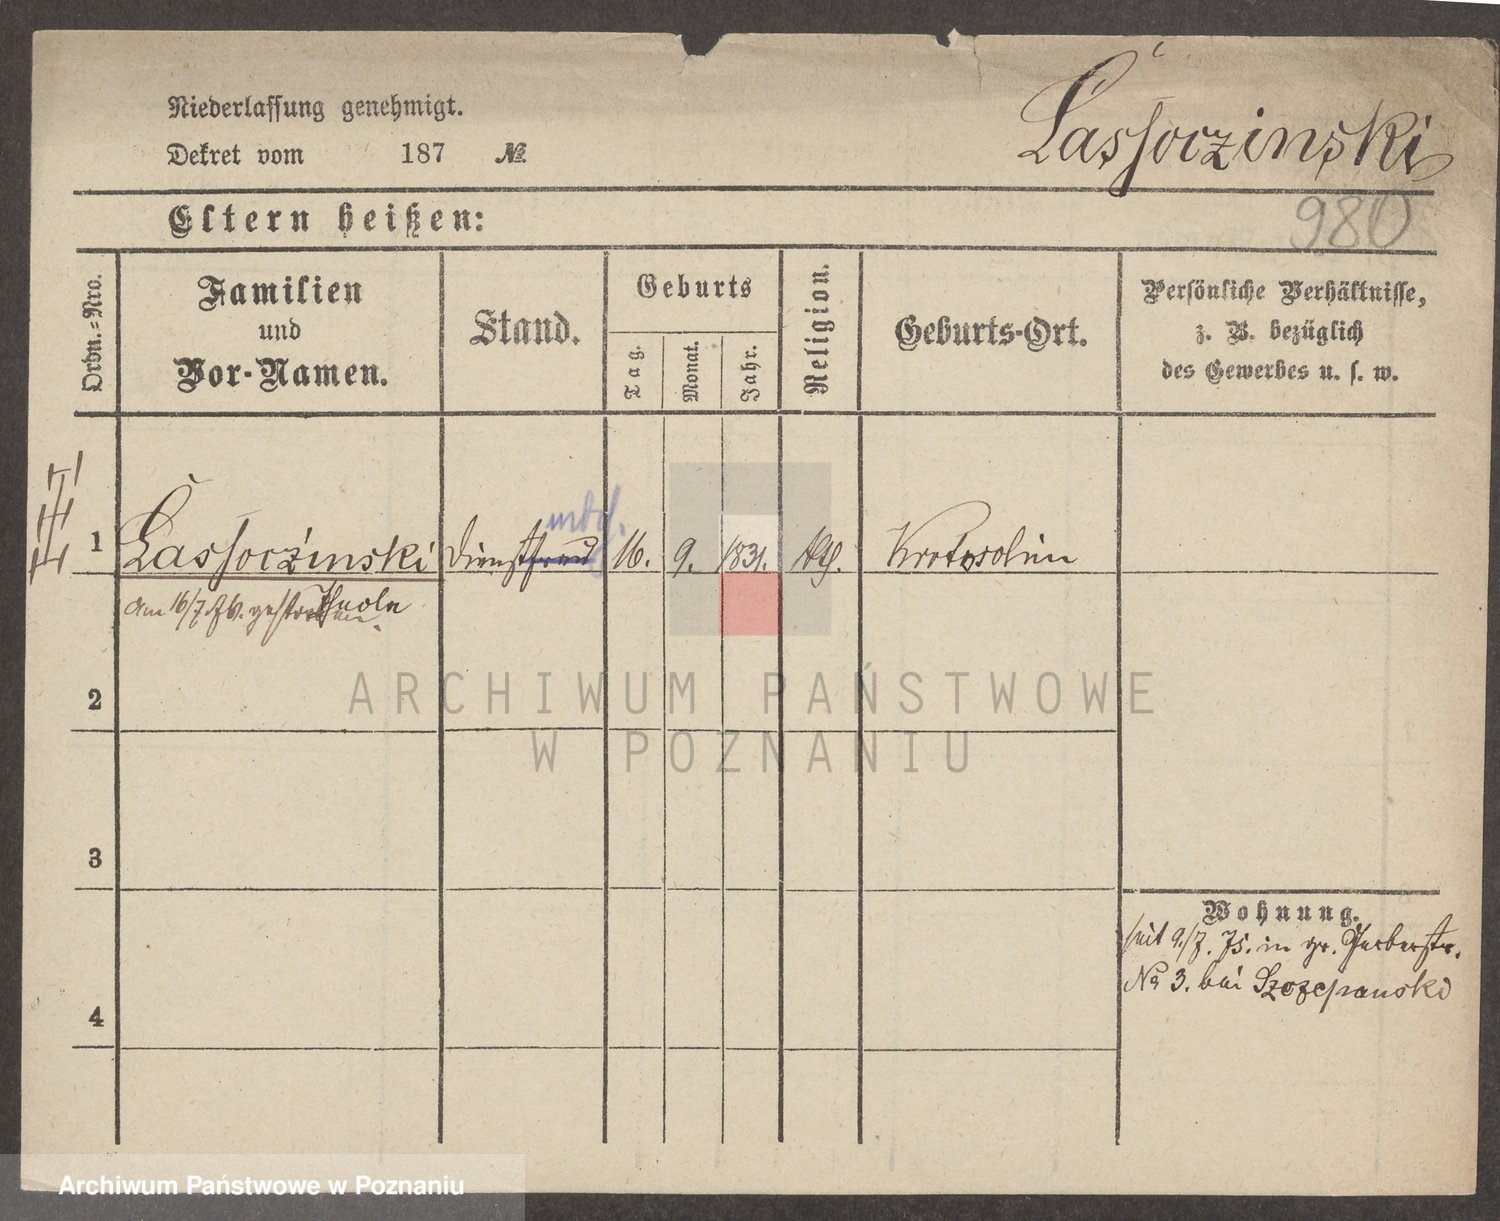 Niederlassung genehmigt.
Dekret vom 187 №
Lassoczinski
980
Eltern heißen:
Ordn.-Nro.
Familien und Vor-Namen.
Stand.
Geburts
Tag.
Monat.
Jahr.
Religion.
Geburts-Ort.
Persönliche Verhältnisse,
z. B. bezüglich
des Gewerbes u. s. w.
1 Lassoczinski Dienst 16. 9. 1831. Krotoschin
Am 16/7 gestorben.
2
3
4
Wohnung.
seit 9./7. 75. in gr. Gerberstr.
No 3. bei Szczepanski
ARCHIWUM PAŃSTWOWE
W POZNANIU
Archiwum Państwowe w Poznaniu